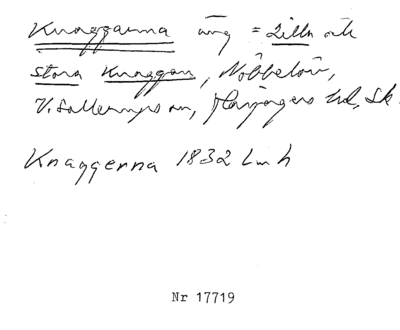 Knaggarna äng = Lilla och
stora Knaggan, Nöbbelöv,
V. Sallerups sn, Harjagers hd, Sk.
Knaggerna 1832 Lmh
Nr 17719